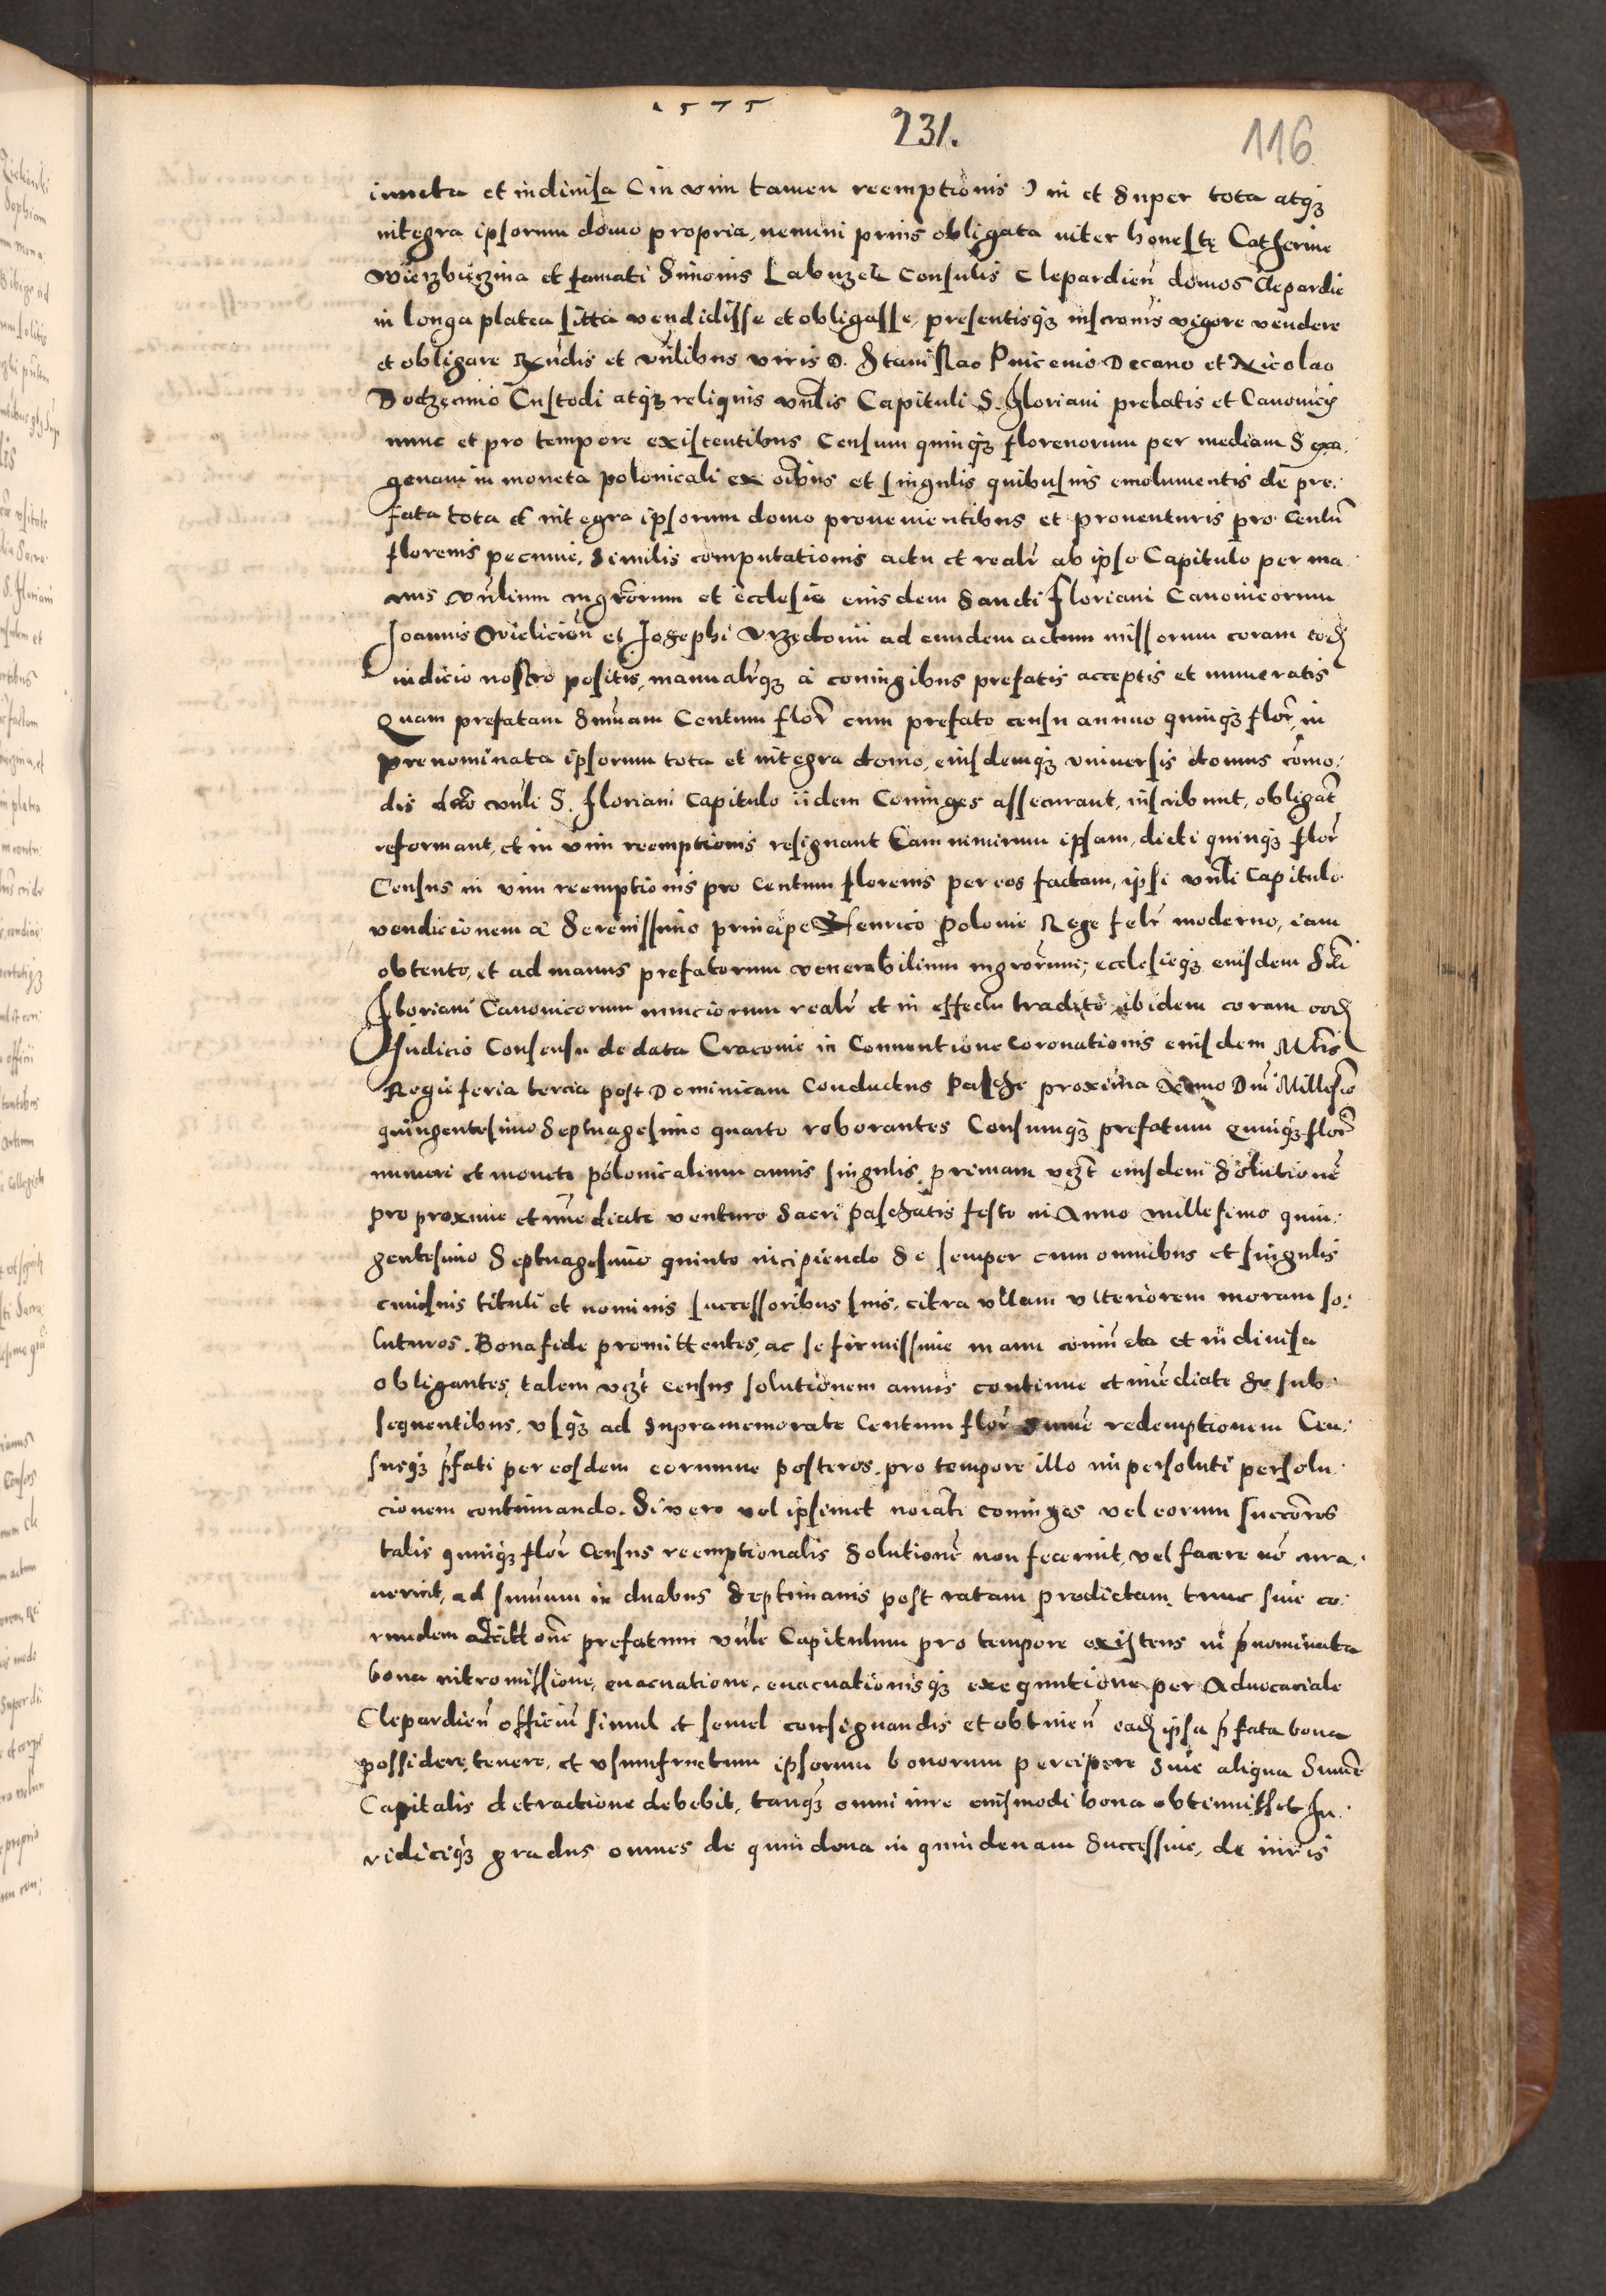 1575
231.
116
iuncta et indiuisa (in vim tamen reemptionis) in et super tota atq3
integra ipsorum domo propria, nemini prius obligata inter honestę Catherine
Wierzbięzina et famati Simonis Labuzek Consulis Clepardien̄ domos Clepardie
in longa platea sitta vendidisse et obligasse, presentisq3 inscronis vigore vendere
et obligare Rn̄dis et vn̄libus viris D. Stanislao Decano et Nicolao
Custodi atq3 reliquis vn̄lis Capituli S. Floriani prelatis et Canonicis
nunc et pro tempore existentibus Censum quinq3 florenorum per mediam Sexa,
genam in moneta polonicali ex oībus et singulis quibusuis emolumentis de pre,
fata tota et integra ipsorum domo prouenientibus et prouenturis pro Centū
florenis pecunie, similis computationis actu et realr̄ ab ipso Capitulo per ma
nus vn̄lium mgrōrum et ecclesie eiusdem Sancti Floriani Canonicorum
Joannis et Josephi Vrzędowii ad eundem actum missorum coram eod
iudicio nostro positis, manualr̄q3 a coniugibus prefatis acceptis et numeratis
Quam prefatam sūmam Centum flor̄ cum prefato censu annuo quinq3 flor̄, in
prenominata ipsorum tota et integra domo, eiusdemq3 vniuersis domus cōmo,
dis dcto vn̄li S. Floriani Capitulo iidem Coniuges assecurant, inscribunt, obligāt
reformant, et in vim reemptionis resignant Eam nimirum ipsam, dicti quinq3 flor̄
Census in vim reemptionis pro Centum florenis per eos factam, ipsi vn̄li Capitulo
vendicionem a Serenissimo principe Henrico Polonie Rege felr̄ moderno, iam
obtento, et ad manus prefatorum venerabilium mgrorum, ecclesieq3 eiusdem Scti
Floriani Canonicorum nunciorum realr̄ et in effectu tradito ibidem coram eod
Judicio Consensu de data Cracouie in Conuentione coronationis eiusdem Mtis
Regie feria tercia post Dominicam Conductus Pasche proxima Anno Dni Millesīo
quingentesimo Septuagesimo quarto roborantes Censumq3 prefatum quinq3 flor̄
numeri et monete polonicalium annis singulis, primam vcz̄t eiusdem Solutionē
pro proxime et īmediate venturo Sacri paschatis festo in Anno millesimo quin,
gentesimo Septuagesimo quinto incipiendo se semper cum omnibus et singulis
cuiusuis tituli et nominis successoribus suis, citra vllam vlteriorem moram so,
luturos. Bona fide promittentes, ac se firmissime manu coniūcta et indiuisa
obligantes, talem vcz̄t census solutionem annis continue et īmediate se sub
sequentibus, vsq3 ad supramemorate Centum flor̄ sūme redemptionem Cen,
susq3 p̄fati per eosdem eorumue posteros, pro tempore illo īpersoluti persolu,
cionem continuando. Si vero vel ipsimet noiāti coniuges vel eorum succōres
talis quinq3 flor̄ Census reemptionalis Solutionē non fecerint, vel facere nō cura,
uerint, ad sūmum in duabus Septimanis post ratam predictam, tunc sine eo,
rundem prefatum vn̄le Capitulum pro tempore existens in p̄nominata
bona intromissione, euacuatione, euacuationisq3 exequutione per Aduocaciale
Clepardien̄ officiū simul et semel consignandis et obtinen̄ ead ipsa p̄fata bona
possidere, tenere, et vsumfructum ipsorum bonorum percipere sine aliqua sūme
Capitalis detractione debebit, tanq3 omni iure eiusmodi bona obtinuisset Ju,
ridiciq3 gradus omnes de quindena in quindenam Successiue, de iuris